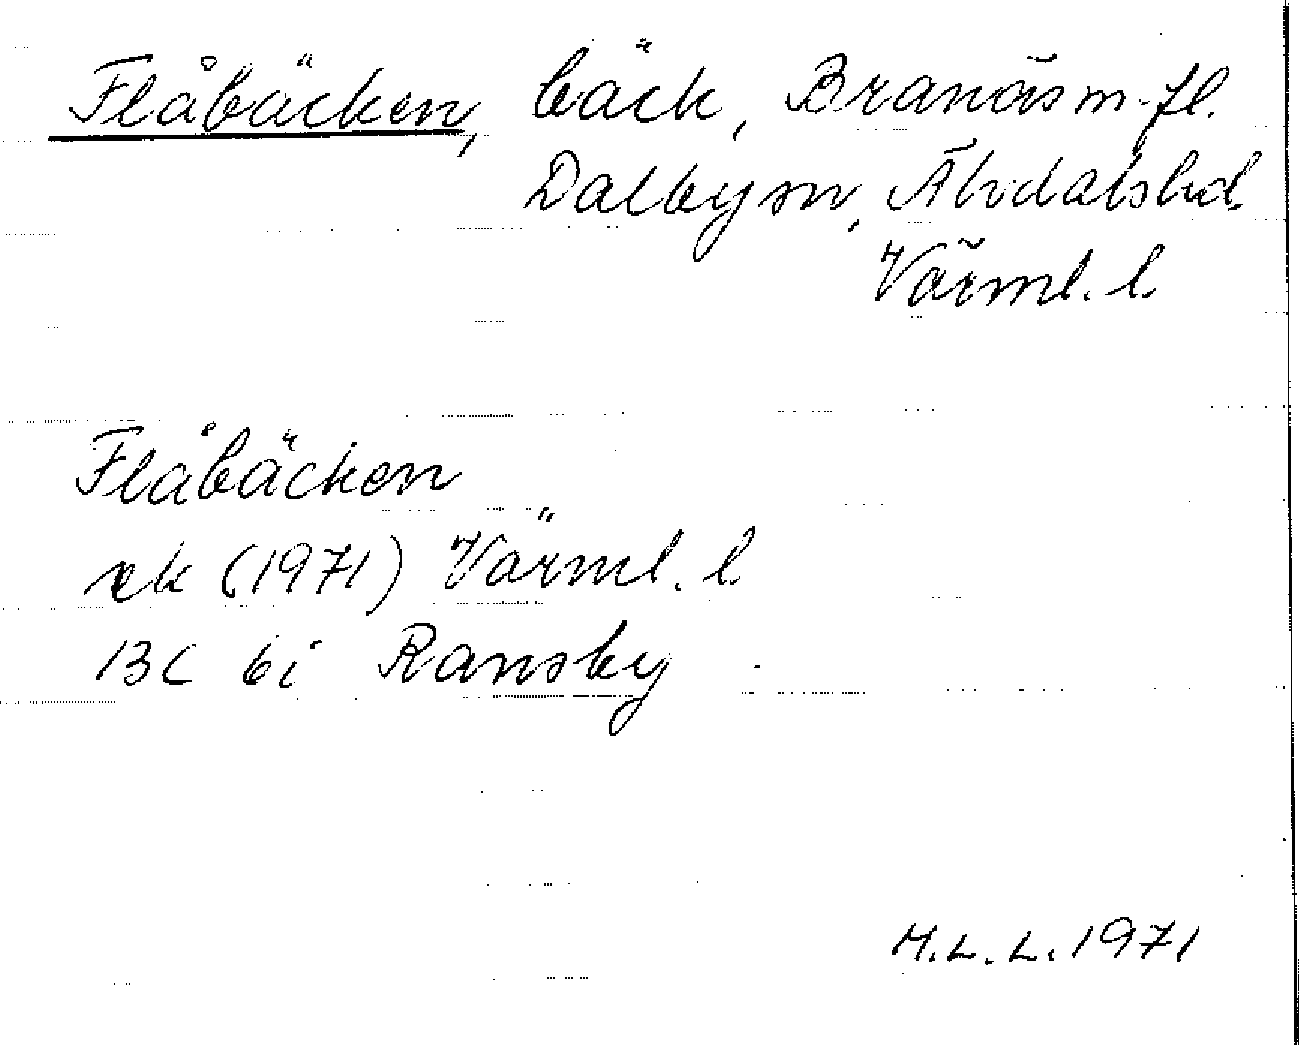 Flåbäcken, bäck, Branäs m.fl.
Dalby sn, Älvdals hd
Värml. l.
Flåbäcken
ek (1971) Värml. l.
13C 6i Ransby
M.L.L. 1971